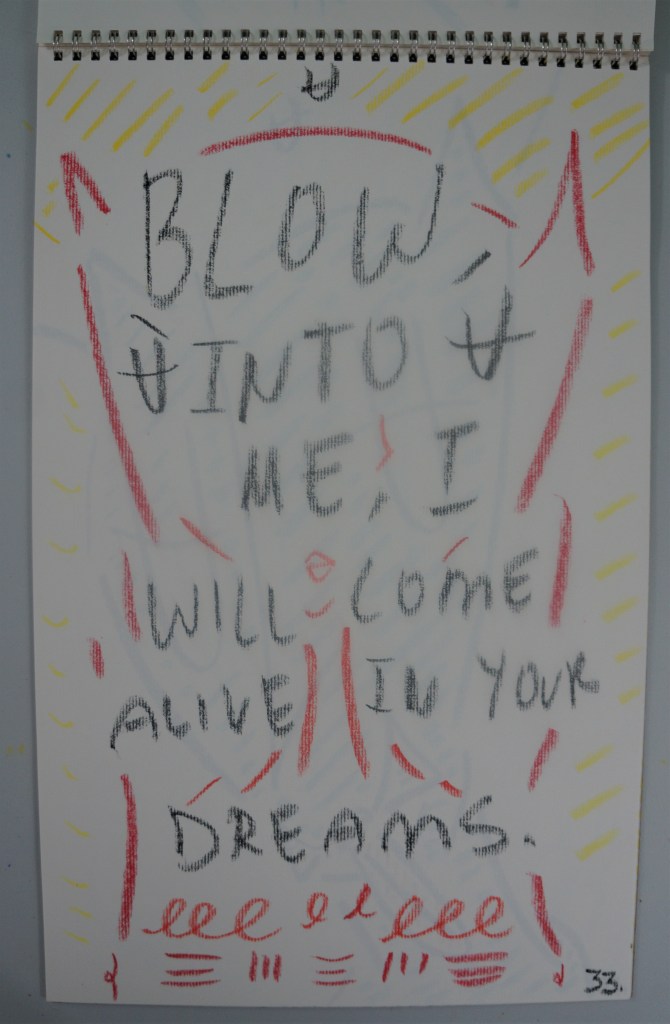 BLOW
INTO
ME, I
WILL COME
ALIVE IN YOUR
DREAMS.
33.